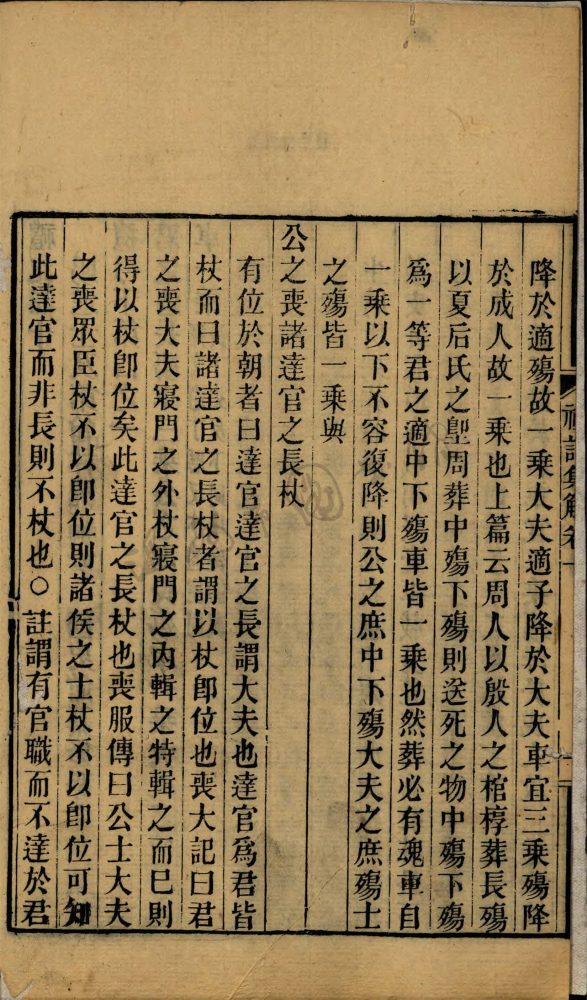 禮記集解卷十
降於適殤故一乘大夫適子降於大夫車宜三乘殤降
於成人故一乘也上篇云周人以殷人之棺椁葬長殤
以夏后氏之堲周葬中殤下殤則送死之物中殤下殤
爲一等君之適中下殤車皆一乘也然葬必有魂車自
一乘以下不容復降則公之庶中下殤大夫之庶殤士
之殤皆一乘與
公之喪諸達官之長杖
有位於朝者曰達官達官之長謂大夫也達官爲君皆
杖而曰諸達官之長杖者謂以杖卽位也喪大記曰君
之喪大夫寢門之外杖寢門之內輯之特輯之而巳則
得以杖卽位矣此達官之長杖也喪服傳曰公士大夫
之喪眾臣杖不以卽位則諸侯之士杖不以卽位可知
此達官而非長則不杖也○註謂有官職而不達於君